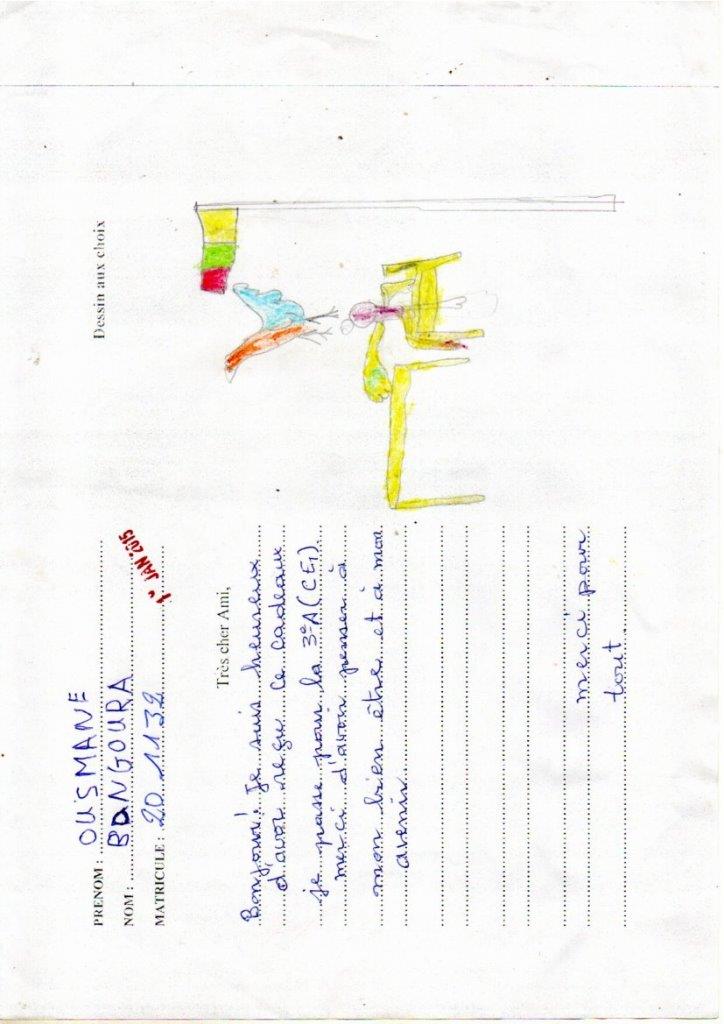 PRENOM : OUSMANE
NOM : BANGOURA
MATRICULE : 20 1132
1° JAN 2015
Très cher Ami,
Bonjour! Je suis heureux
d'avoir reçu ce cadeaux
je passe pour la 3e A (CE1)
merci d'avoir penser à
mon bien être et à mon
avenir
merci pour
tout
Dessin aux choix